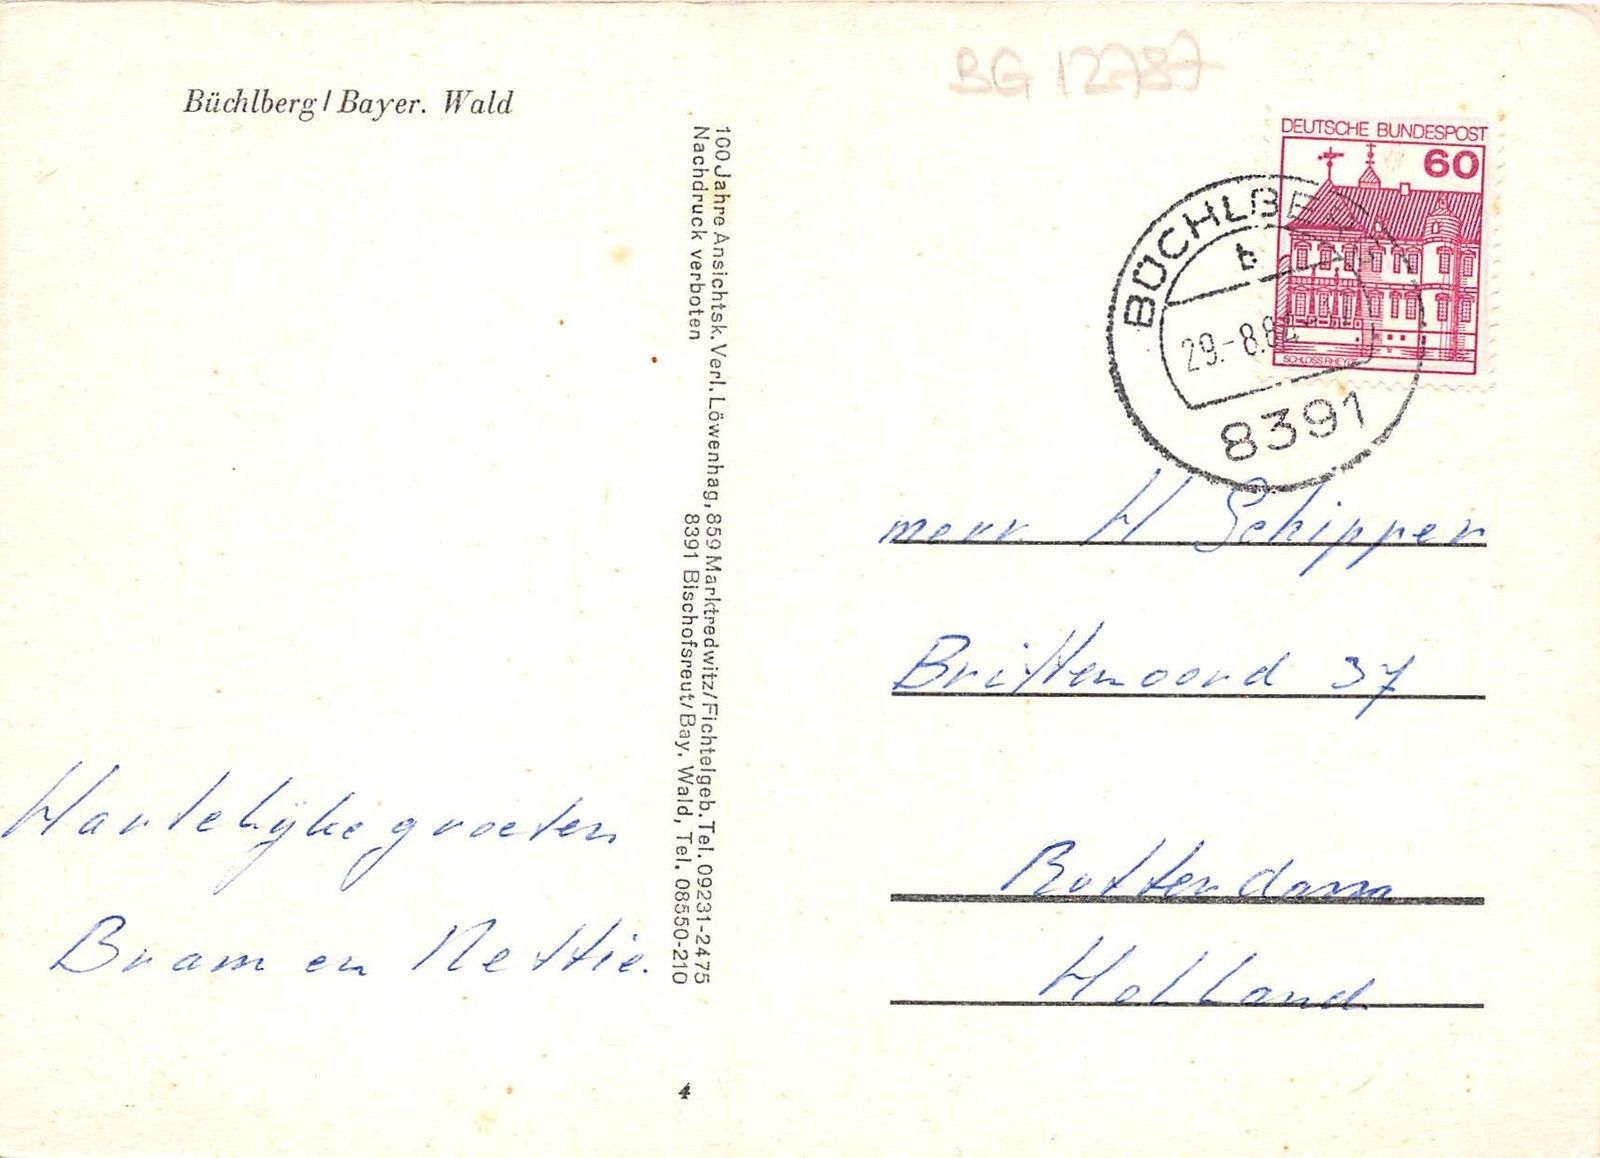 BG 12787
Büchlberg / Bayer. Wald
DEUTSCHE BUNDESPOST
60
SCHLOSS RHEYDT
BÜCHLBERG
b
29.-8.84
8391
100 Jahre Ansichtsk. Verl. Löwenhag, 859 Marktredwitz/Fichtelgeb. Tel. 09231-2475
Nachdruck verboten 8391 Bischofsreut/Bay. Wald, Tel. 08550-210
Hartelijke groeten
Bram en Nettie.
mevr H Schipper
Brittenoord 37
Rotterdam
Holland
4